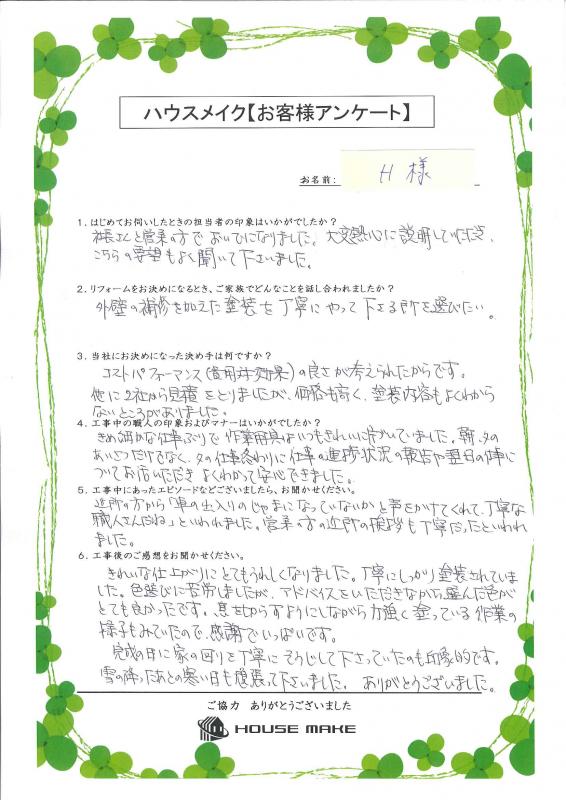 ハウスメイク【お客様アンケート】
お名前：　H 様
1. はじめてお伺いしたときの担当者の印象はいかがでしたか？
社長さんと営業の方でおいでになりました。大変熱心に説明していただき、
こちらの要望もよく聞いて下さいました。
2. リフォームをお決めになるとき、ご家族でどんなことを話し合われましたか？
外壁の補修を加えた塗装を丁寧にやって下さる所を選びたい。
3. 当社にお決めになった決め手は何ですか？
コストパフォーマンス(費用対効果)の良さが考えられたからです。
他に2社から見積をとりましたが、価格も高く、塗装内容もよくわから
ないところがありました。
4. 工事中の職人の印象およびマナーはいかがでしたか？
きめ細かな仕事ぶりで作業用具はいつもきれいに片づいていました。朝、夕の
あいさつだけでなく、夕の仕事終わりに仕事の進捗状況の報告や翌日の仕事に
ついてお話いただきよくわかって安心できました。
5. 工事中にあったエピソードなどございましたら、お聞かせください。
近所の方から「車の出入りのじゃまになっていないか」と声をかけてくれて、丁寧な
職人さんだね」といわれました。営業の方の近所の挨拶も丁寧だったといわれ
ました。
6. 工事後のご感想をお聞かせください。
きれいな仕上がりにとてもうれしくなりました。丁寧にしっかり塗装されていま
した。色選びに苦労しましたが、アドバイスをいただきながら選んだ色が
とても良かったです。息をきらすようにしながら力強く塗っている作業の
様子もみていたので、感謝でいっぱいです。
完成の日に家の回りを丁寧にそうじして下さっていたのも印象的です。
雪の降ったあとの寒い日も頑張って下さいました。ありがとうございました。
ご協力　ありがとうございました
HOUSE MAKE